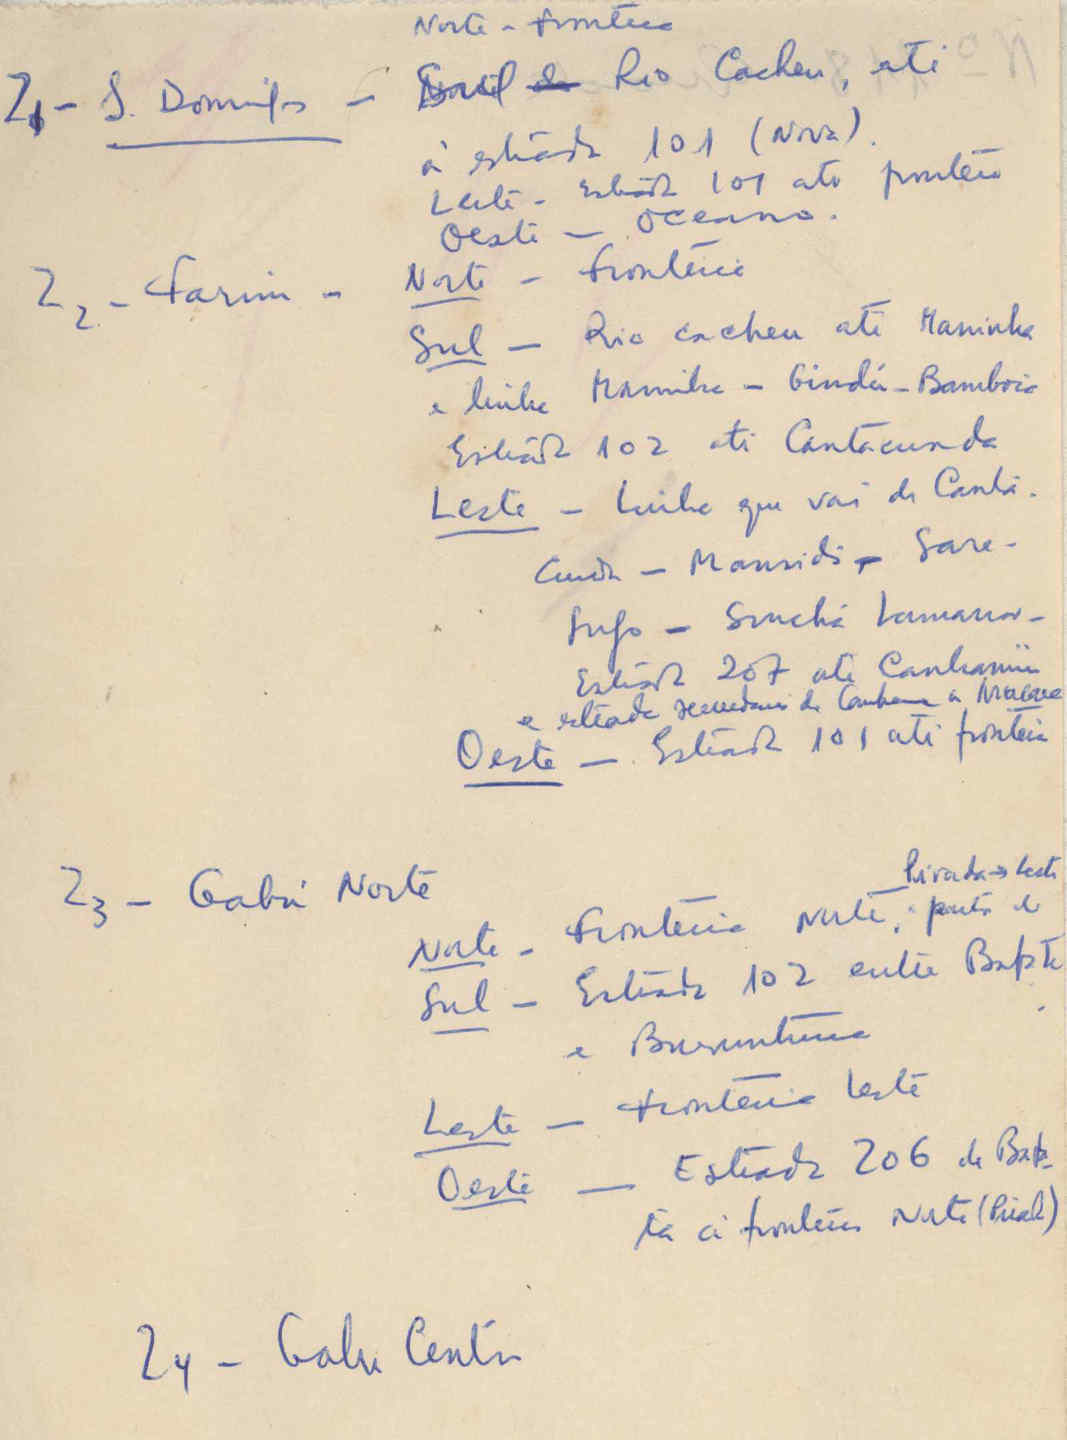 Norte - Fronteira
Z1 - S. Domingos - Sul Rio Cacheu, até
à estrada 101 (Nova).
Leste - Estrada 101 até fronteira
Oeste - Oceano.
Z2 - Farim - Norte - Fronteira
Sul - Rio Cacheu até Maminha
e linha Maminha - Gindú - Bamboia
Estrada 102 até Cantacunda
Leste - Linha que vai de Canta-
cunda - Mansidi - Sare-
- Sinchá
Estrada 207 até Canhamina
e estrada secundaria de a
Oeste - Estrada 101 até fronteira
Z3 - Gabú Norte
Pirada → Leste
Norte - Fronteira Norte, a partir de
Sul - Estrada 102 entre Bafatá
e Buruntuma
Leste - Fronteira Leste
Oeste - Estrada 206 de Bafa-
tá à fronteira Norte (Pirada)
Z4 - Gabu Centro